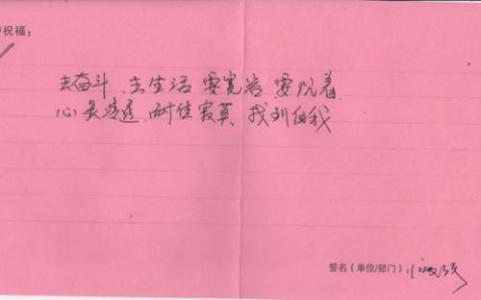 /祝福：
去奋斗 去生活 要宽容 要沉着
心灵透 耐住寂寞 找到自我
签名（单位/部门）